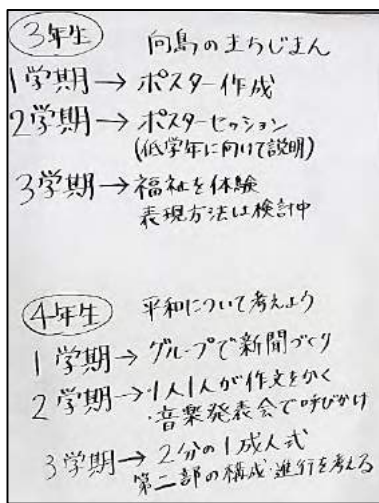 3年生 向島のまちじまん
1学期→ポスター作成
2学期→ポスターセッション
(低学年に向けて説明)
3学期→福祉を体験
表現方法は検討中
4年生 平和について考えよう
1学期→グループで新聞づくり
2学期→・1人1人が作文をかく
・音楽発表会で呼びかけ
3学期→2分の1成人式
第二部の構成・進行を考える